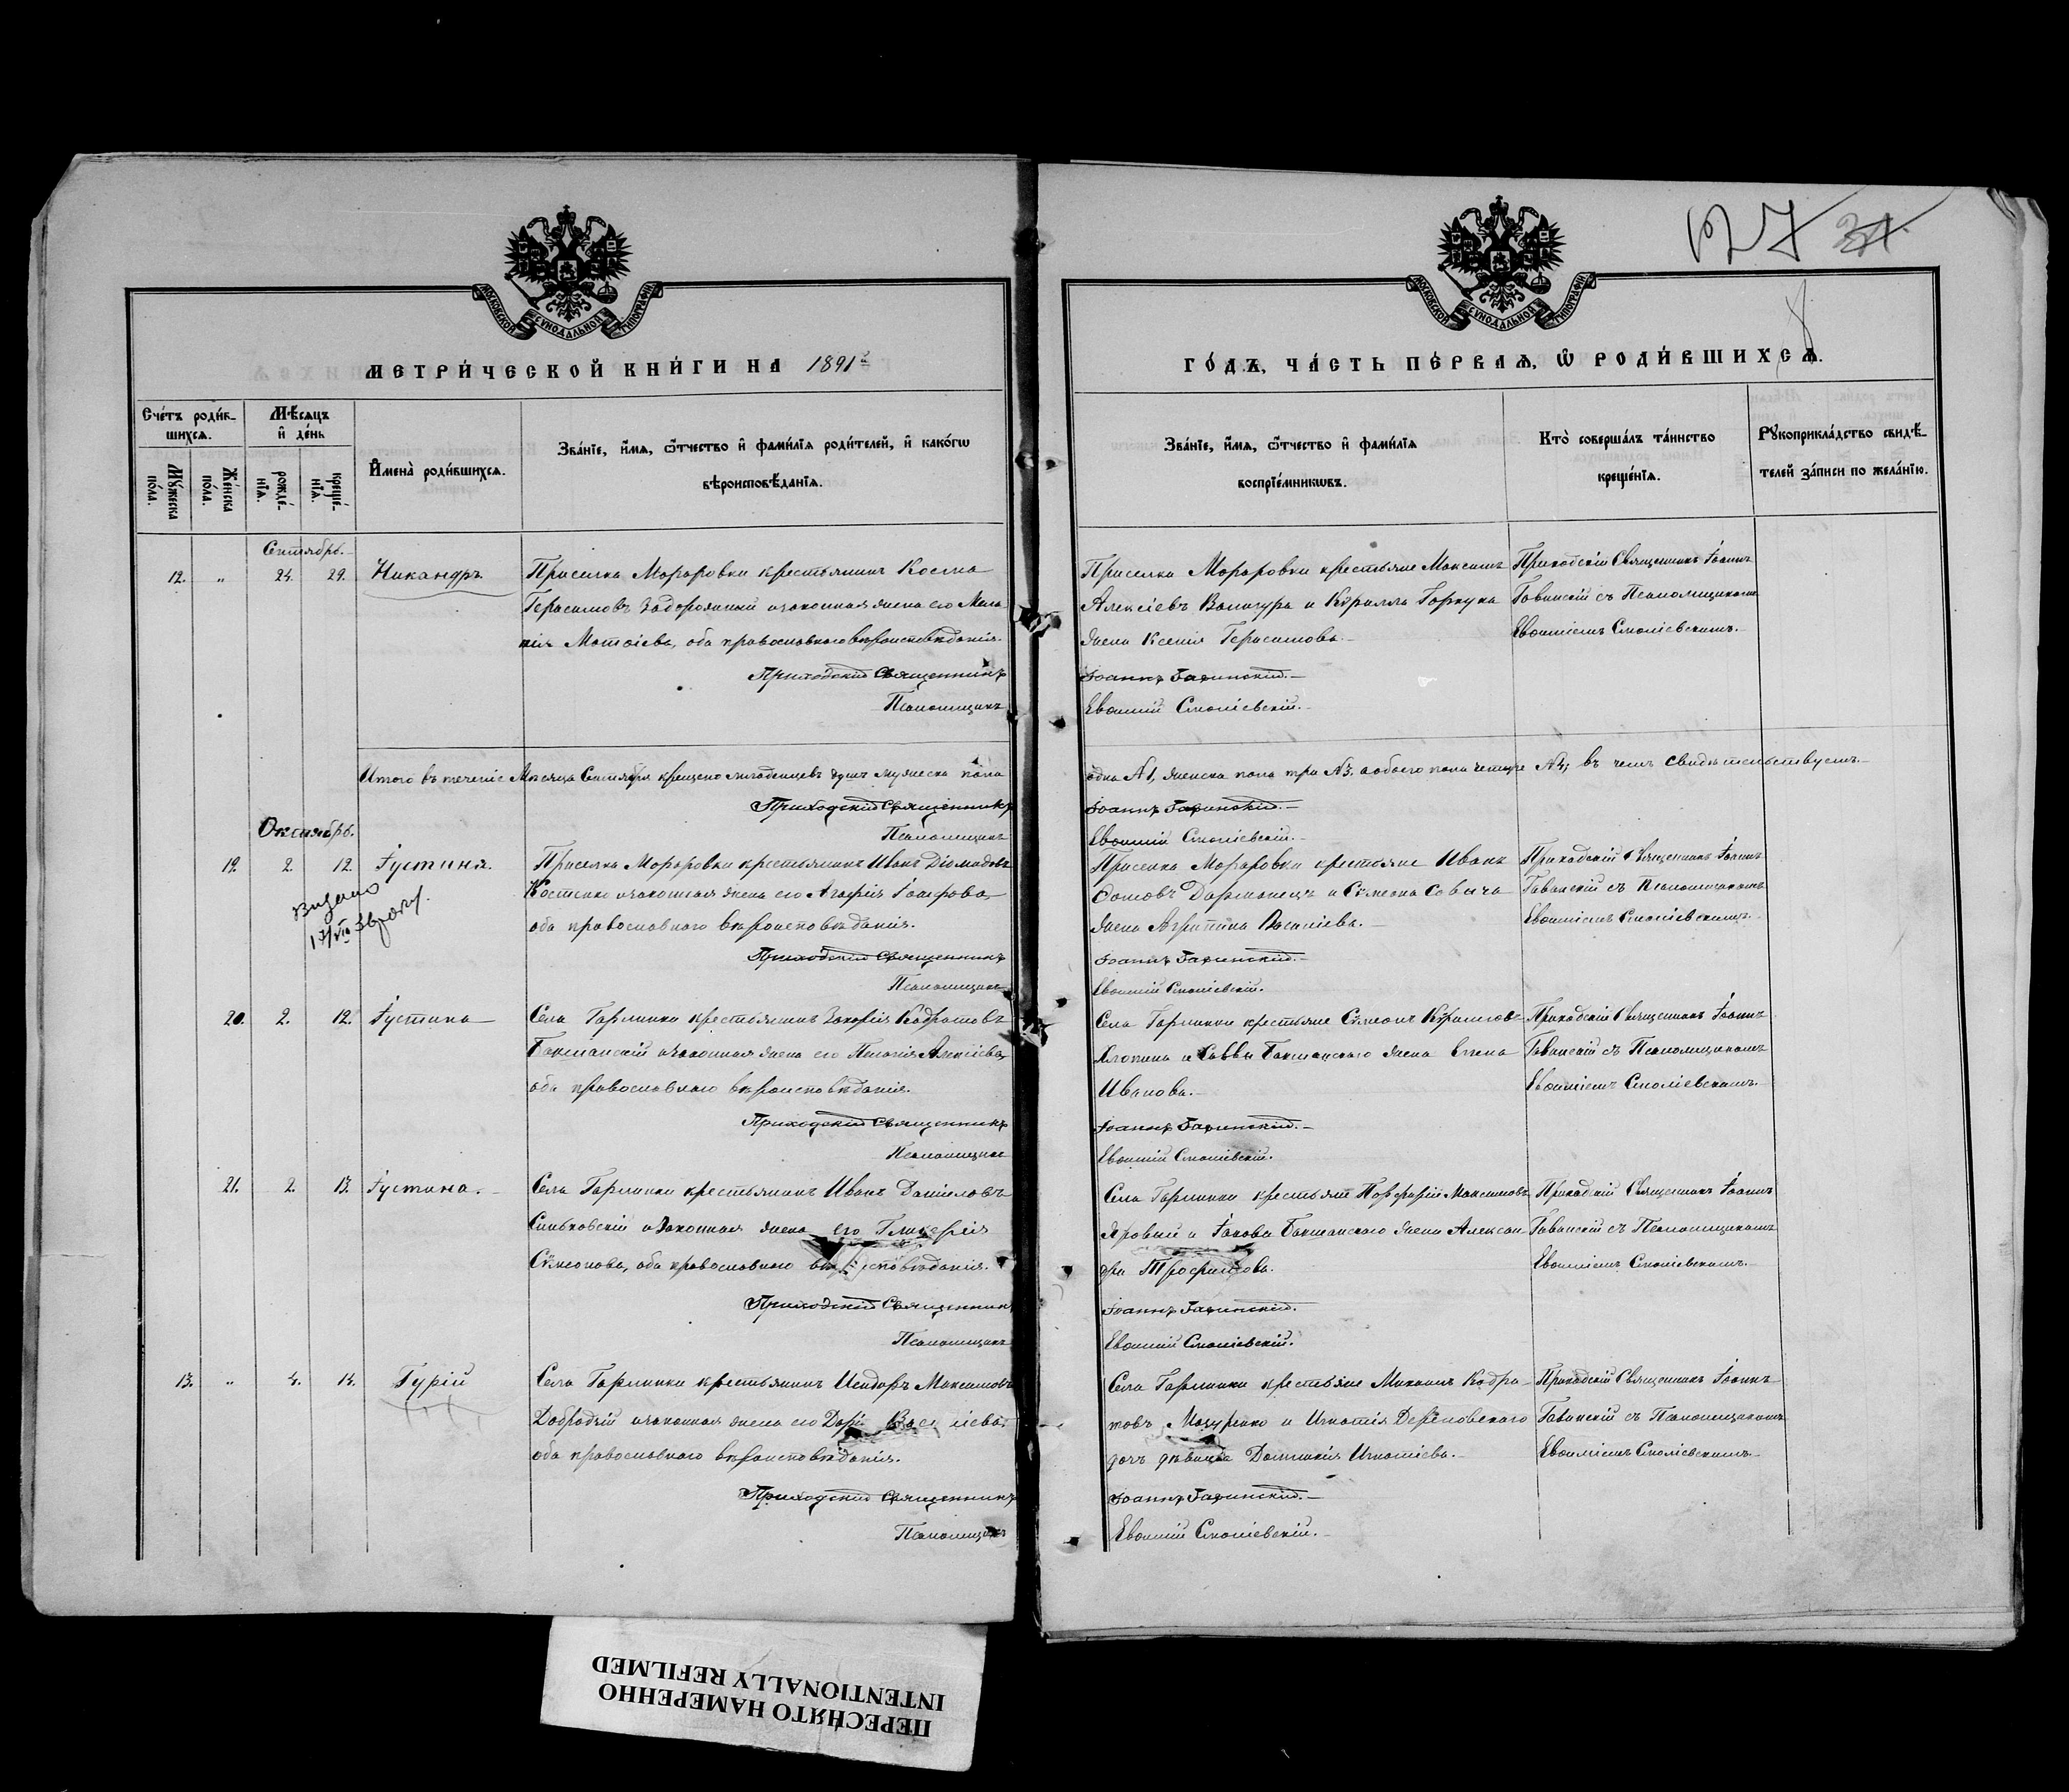 127 31
МОСКОВСКОЙ СУНОДАЛЬНОЙ ТИПОГРАФІИ
МОСКОВСКОЙ СУНОДАЛЬНОЙ ТИПОГРАФІИ
МЕТРИ́ЧЕСКОЙ КНИ́ГИ НА 1891й
ГО́ДЪ, ЧА́СТЬ ПЕ́РВАѦ, Ѡ РОДИ́ВШИХСѦ.
Сче́тъ роди́в-
шихсѧ.
Му́жеска по́ла.
Же́нска по́ла.
Мѣ́сѧцъ и҆ де́нь
рожде́-
нїѧ.
креще́-
нїѧ.
И҆мена̀ роди́вшихсѧ.
Зва́нїе, и҆́мѧ, ѻ҆́тчество и҆ фами́лїѧ роди́телей, и҆ како́гѡ
вѣроисповѣ́данїѧ.
Зва́нїе, и҆́мѧ, ѻ҆́тчество и҆ фами́лїѧ
воспрїе́мникѡвъ.
Кто̀ соверша́лъ та́инство
креще́нїѧ.
Рꙋкоприкла́дство свидѣ́-
телей за́писи по жела́нїю.
Сентябрь.
12. „ 24. 29. Никандръ
Приселка Мораровки крестьянинъ Косма
Герасимовъ Задорожный и законная жена его Мела-
нія Матѳіева, оба православнаго вѣроисповѣданія.
Приходскій Священникъ
Псаломщикъ
Приселка Мораровки крестьяне Максимъ
Алексіевъ Вакичура и Кѵрилла Горкуна
жена Ксенія Герасимова.
Іоаннъ Гавинскій.
Евѳимій Смоліевскій.
Приходскій Священникъ Іоаннъ
Гавинскій съ Псаломщикомъ
Евѳиміемъ Смоліевскимъ.
Итого въ теченіе Мѣсяца Сентября крещено младенцевъ душъ мужеска пола
одна №1, женска пола три №3, а обоего пола четыре №4; въ чемъ свидѣтельствуемъ.
Приходскій Священникъ
Іоаннъ Гавинскій.
Псаломщикъ
Евѳимій Смоліевскій.
Октябрь.
19. 2. 12. Іустина.
Видано
Приселка Мораровки крестьянинъ Иванъ Діомидовъ
Костенко и законная жена его Агафія Іосифова,
оба православнаго вѣроисповѣданія.
Приходскій Священникъ
Псаломщикъ
Приселка Мораровки крестьяне Иванъ
Ѳомовъ Дарманецъ и Сѵмеона Совича
жена Агрипина Василіева.
Іоаннъ Гавинскій.
Евѳимій Смоліевскій.
Приходскій Священникъ Іоаннъ
Гавинскій съ Псаломщикомъ
Евѳиміемъ Смоліевскимъ.
20. 2. 12. Іустина
Села Гарминки крестьянинъ Захарія Кодратовъ
Бакшанскій и законная жена его Пелагія Алексіева,
оба православнаго вѣроисповѣданія.
Приходскій Священникъ
Псаломщикъ
Села Гарминки крестьяне Сѵмеонъ Кѵрилловъ
Хлопина и Саввы Бакшанскаго жена Елена
Иванова.
Іоаннъ Гавинскій.
Евѳимій Смоліевскій.
Приходскій Священникъ Іоаннъ
Гавинскій съ Псаломщикомъ
Евѳиміемъ Смоліевскимъ.
21. 2. 13. Іустина.
Села Гарминки крестьянинъ Иванъ Даніиловъ
Синьковскій и законная жена его Гликерія
Сѵмеонова, оба православнаго вѣроисповѣданія.
Приходскій Священникъ
Псаломщикъ
Села Гарминки крестьяне Порфирій Максимовъ
Яровый и Іакова Бакшанскаго жена Алексан-
дра Трофимова.
Іоаннъ Гавинскій.
Евѳимій Смоліевскій.
Приходскій Священникъ Іоаннъ
Гавинскій съ Псаломщикомъ
Евѳиміемъ Смоліевскимъ.
13. „ 4. 14. Гурій
Села Гарминки крестьянинъ Исидоръ Максимовъ
Добродзій и законная жена его Дарія Василіева,
оба православнаго вѣроисповѣданія.
Приходскій Священникъ
Псаломщикъ
Села Гарминки крестьяне Михаилъ Кодра-
товъ Мазуренко и Игнатія Дереновскаго
дочь дѣвица Домникія Игнатіева.
Іоаннъ Гавинскій.
Евѳимій Смоліевскій.
Приходскій Священникъ Іоаннъ
Гавинскій съ Псаломщикомъ
Евѳиміемъ Смоліевскимъ.
ПЕРЕСНЯТО НАМЕРЕННО
INTENTIONALLY REFILMED